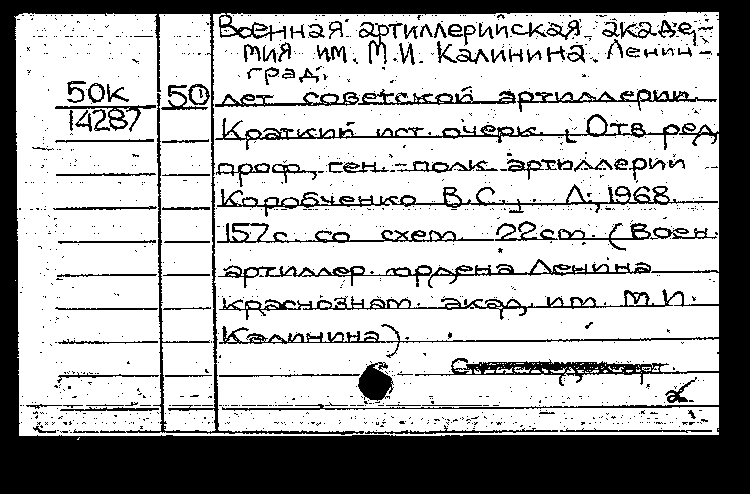 Военная артиллерийская акаде-
мия им. М.И. Калинина. Ленин-
град.
50к 50 лет советской артиллерии.
14287 Краткий ист. очерк. [Отв ред,
проф., ген.-полк артиллерии
Коробченко В.С.]. Л., 1968.
157с. со схем. 22см. (Воен.
артиллер. ордена Ленина
краснознам. акад, им. М.И.
Калинина).
2